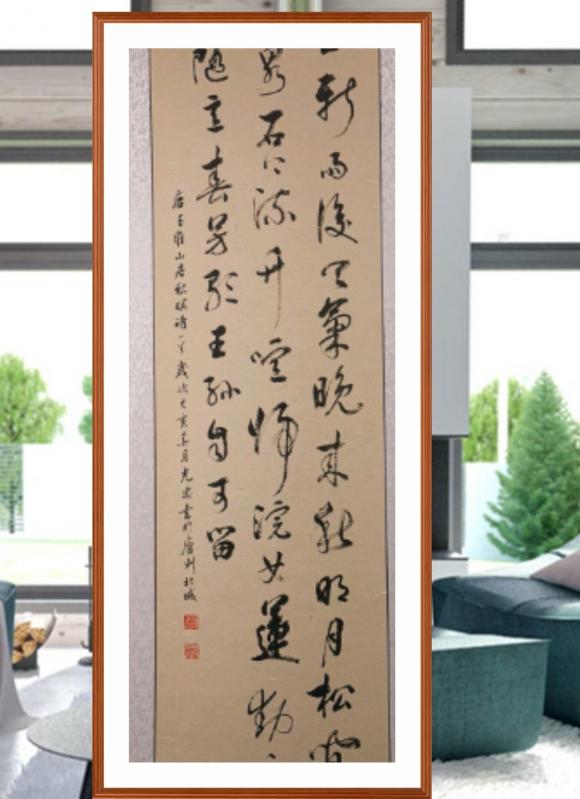 新雨後天氣晚來秋明月松間
泉石上流竹喧歸浣女蓮動
隨意春芳歇王孫自可留
唐王維山居秋暝詩一首歲次亥月光書於廬州北城